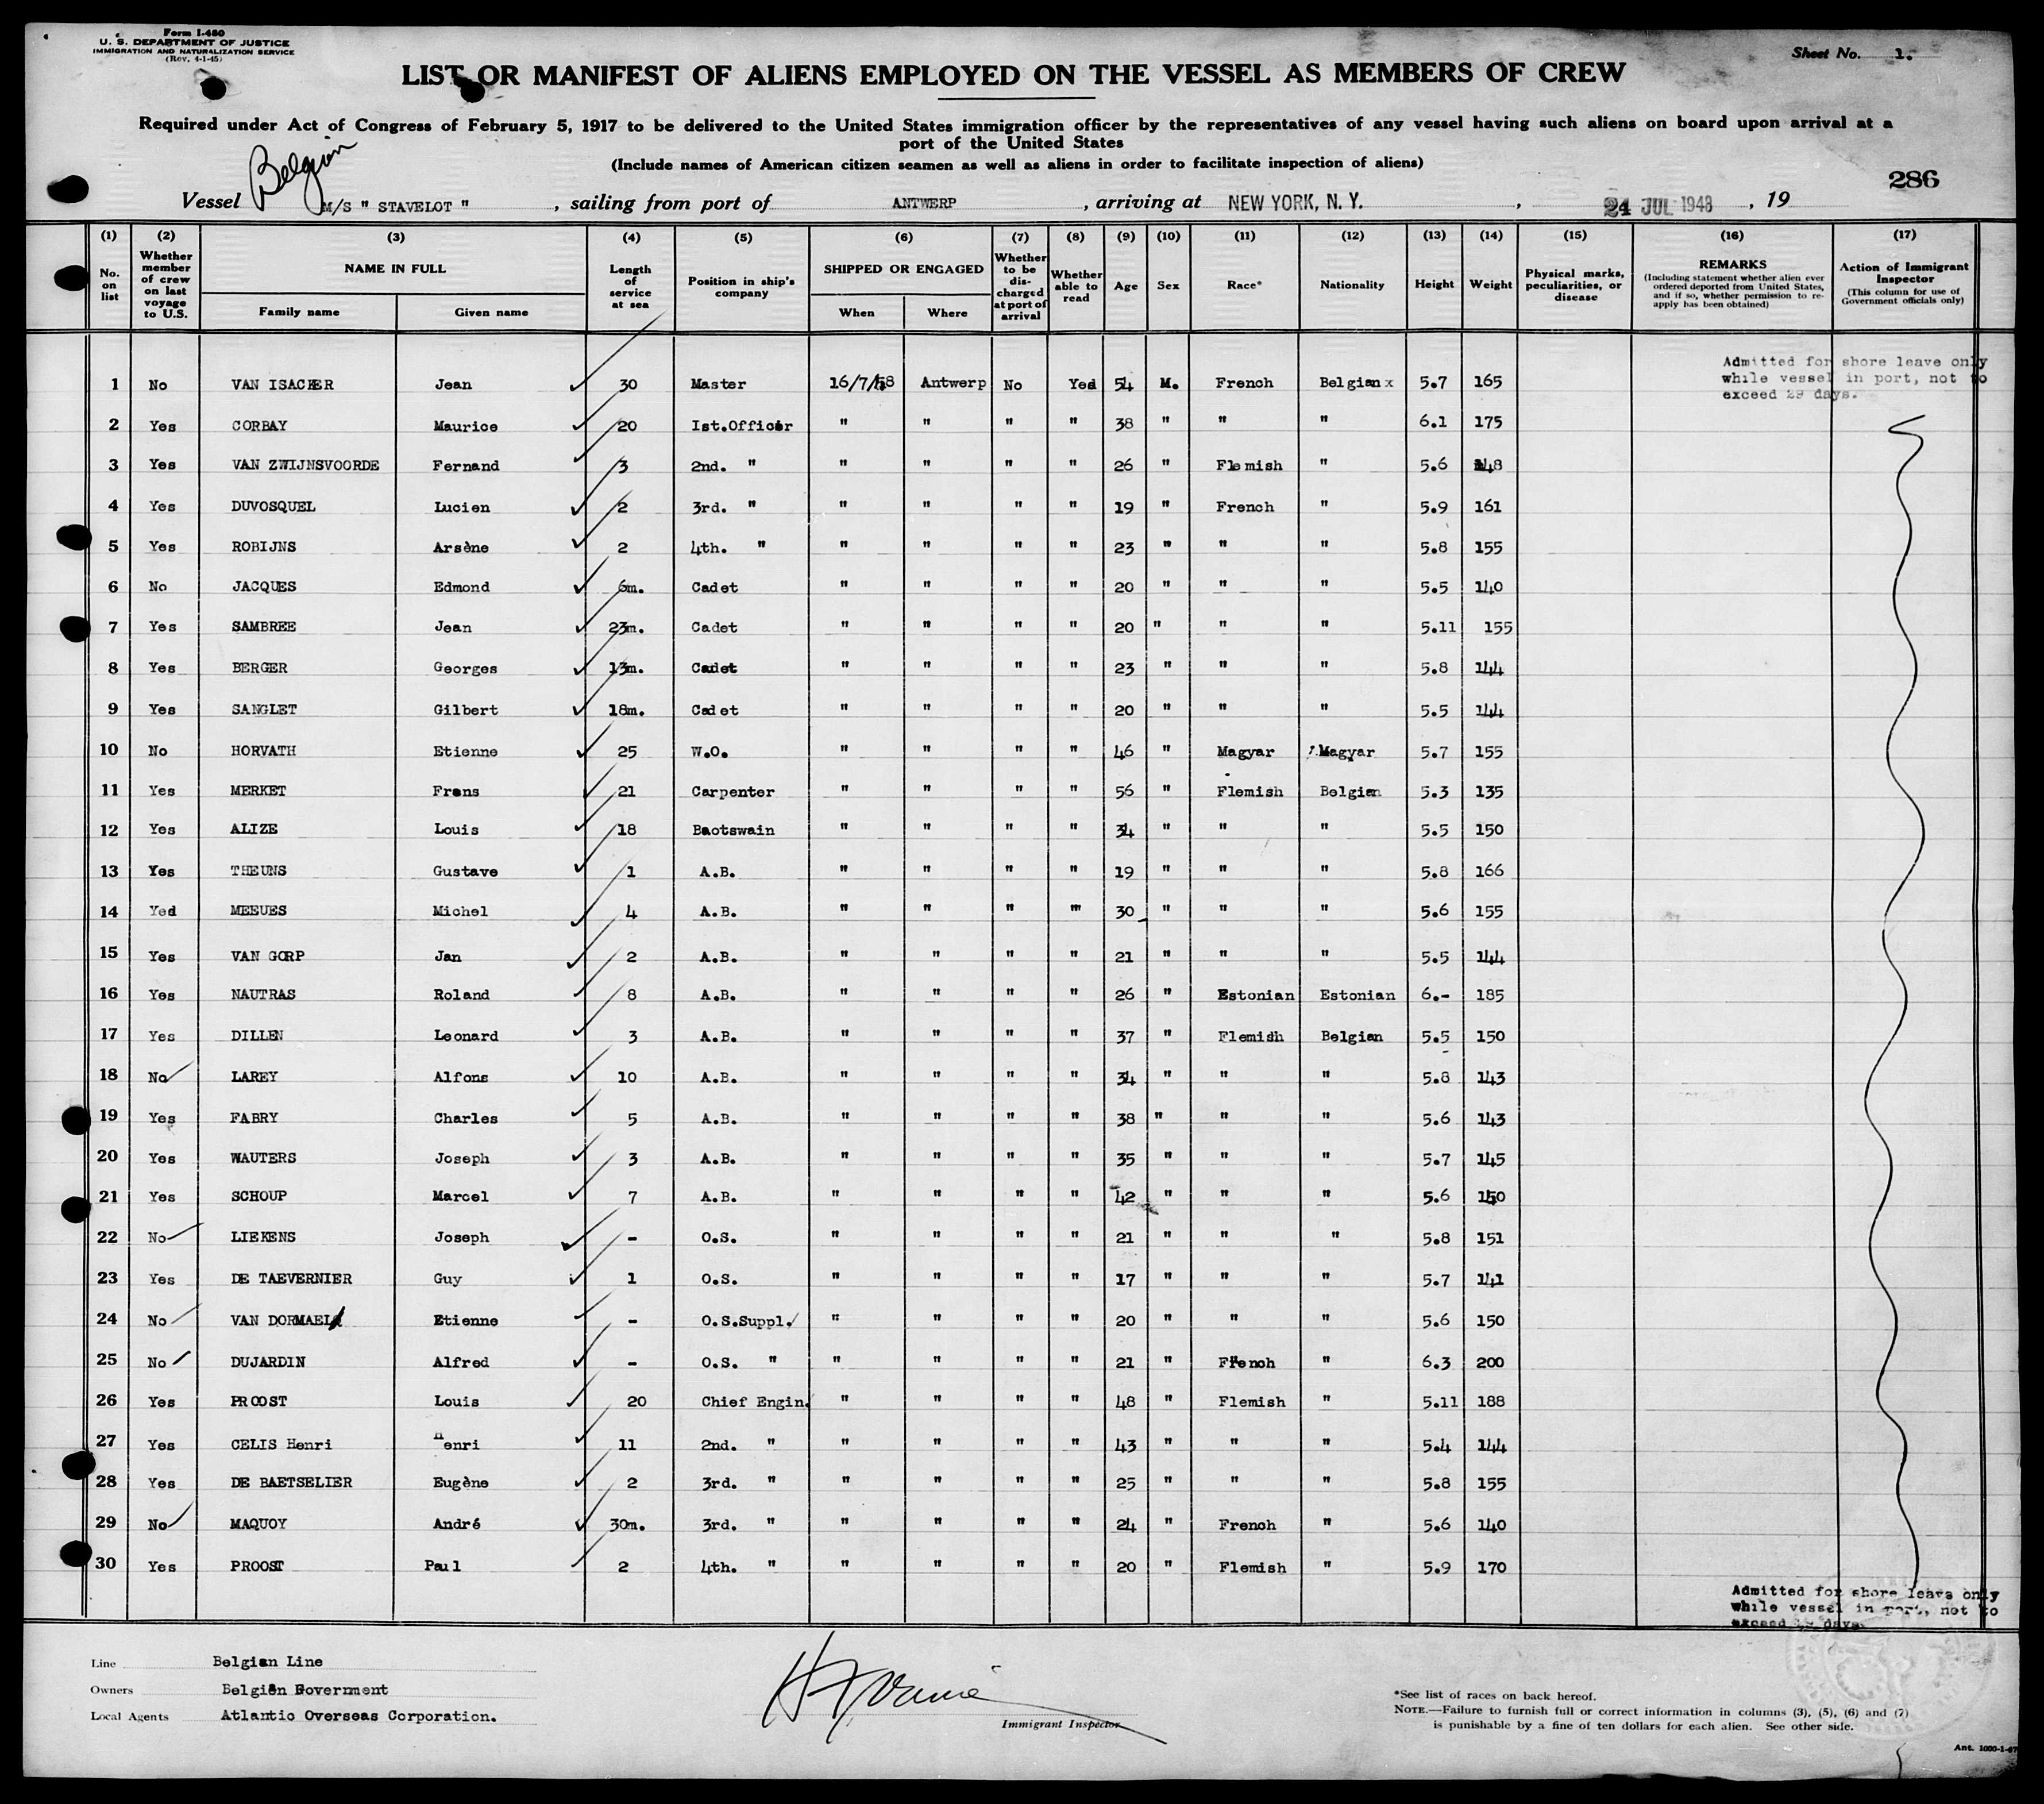 Form I-480
U. S. DEPARTMENT OF JUSTICE
IMMIGRATION AND NATURALIZATION SERVICE
(Rev. 4-1-45)
Sheet No. 1.
LIST OR MANIFEST OF ALIENS EMPLOYED ON THE VESSEL AS MEMBERS OF CREW
Required under Act of Congress of February 5, 1917 to be delivered to the United States immigration officer by the representatives of any vessel having such aliens on board upon arrival at a
port of the United States
(Include names of American citizen seamen as well as aliens in order to facilitate inspection of aliens)
286
Belgian
Vessel M/S " STAVELOT " , sailing from port of ANTWERP , arriving at NEW YORK, N. Y. , 24 JUL 1948 , 19
(1) No. on list (2) Whether member of crew on last voyage to U.S. (3) NAME IN FULL Family name Given name (4) Length of service at sea (5) Position in ship's company (6) SHIPPED OR ENGAGED When Where (7) Whether to be discharged at port of arrival (8) Whether able to read (9) Age (10) Sex (11) Race* (12) Nationality (13) Height (14) Weight (15) Physical marks, peculiarities, or disease (16) REMARKS (Including statement whether alien ever ordered deported from United States, and if so, whether permission to reapply has been obtained) (17) Action of Immigrant Inspector (This column for use of Government officials only)
Admitted for shore leave only
while vessel in port, not to
exceed 29 days.
1 No VAN ISACKER Jean 30 Master 16/7/48 Antwerp No Yes 54 M. French Belgian x 5.7 165
2 Yes CORBAY Maurice 20 Ist.Officer " " " " 38 " " " 6.1 175
3 Yes VAN ZWIJNSVOORDE Fernand 3 2nd. " " " " " 26 " Flemish " 5.6 148
4 Yes DUVOSQUEL Lucien 2 3rd. " " " " " 19 " French " 5.9 161
5 Yes ROBIJNS Arsène 2 4th. " " " " " 23 " " " 5.8 155
6 No JACQUES Edmond 6m. Cadet " " " " 20 " " " 5.5 140
7 Yes SAMBREE Jean 23m. Cadet " " " " 20 " " " 5.11 155
8 Yes BERGER Georges 13m. Cadet " " " " 23 " " " 5.8 144
9 Yes SANGLET Gilbert 18m. Cadet " " " " 20 " " " 5.5 144
10 No HORVATH Etienne 25 W.O. " " " " 46 " Magyar Magyar 5.7 155
11 Yes MERKET Frans 21 Carpenter " " " " 56 " Flemish Belgian 5.3 135
12 Yes ALIZE Louis 18 Baotswain " " " " 34 " " " 5.5 150
13 Yes THEUNS Gustave 1 A.B. " " " " 19 " " " 5.8 166
14 Yed MEEUES Michel 4 A.B. " " " " 30 " " " 5.6 155
15 Yes VAN GORP Jan 2 A.B. " " " " 21 " " " 5.5 144
16 Yes NAUTRAS Roland 8 A.B. " " " " 26 " Estonian Estonian 6.- 185
17 Yes DILLEN Leonard 3 A.B. " " " " 37 " Flemish Belgian 5.5 150
18 No LAREY Alfons 10 A.B. " " " " 34 " " " 5.8 143
19 Yes FABRY Charles 5 A.B. " " " " 38 " " " 5.6 143
20 Yes WAUTERS Joseph 3 A.B. " " " " 35 " " " 5.7 145
21 Yes SCHOUP Marcel 7 A.B. " " " " 42 " " " 5.6 150
22 No LIEKENS Joseph - O.S. " " " " 21 " " " 5.8 151
23 Yes DE TAEVERNIER Guy 1 O.S. " " " " 17 " " " 5.7 141
24 No VAN DORMAEL Etienne - O.S.Suppl. " " " " 20 " " " 5.6 150
25 No DUJARDIN Alfred - O.S. " " " " " 21 " French " 6.3 200
26 Yes PROOST Louis 20 Chief Engin. " " " " 48 " Flemish " 5.11 188
27 Yes CELIS Henri Henri 11 2nd. " " " " " 43 " " " 5.4 144
28 Yes DE BAETSELIER Eugène 2 3rd. " " " " " 25 " " " 5.8 155
29 No MAQUOY André 30m. 3rd. " " " " " 24 " French " 5.6 140
30 Yes PROOST Paul 2 4th. " " " " " 20 " Flemish " 5.9 170
Admitted for shore leave only
while vessel in port, not to
exceed 29 days.
Line Belgian Line
Owners Belgian Government
Local Agents Atlantic Overseas Corporation.
Immigrant Inspector
*See list of races on back hereof.
NOTE.—Failure to furnish full or correct information in columns (3), (5), (6) and (7)
is punishable by a fine of ten dollars for each alien. See other side.